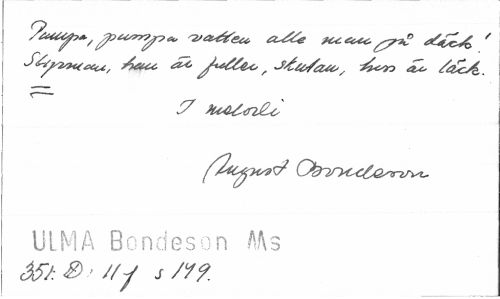 Pumpa, pumpa vatten alle man på däck!
Styrman, han är fuller, skutan, hon är läck.
I melodi
August Bondeson
ULMA Bondeson Ms
351: D: 11 f s 149.